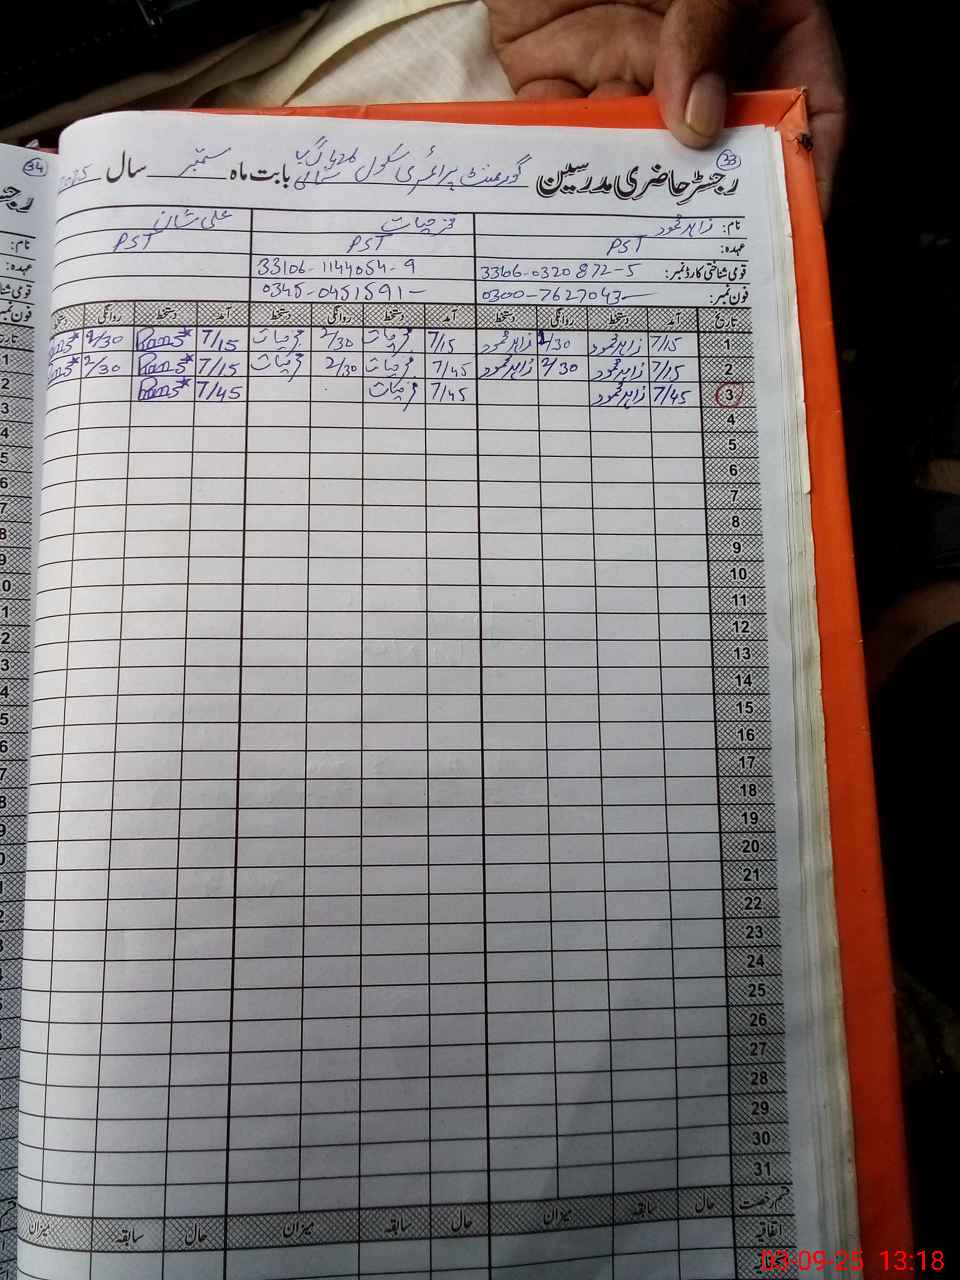 33
رجسٹر حاضری مدرسین گورنمنٹ پرائمری سکول 426 گ ب بابت ماہ ستمبر سال 2025
نام: زاہد محمود علی شان
عہدہ: PST PST PST
قومی شناختی کارڈ نمبر: 33106-1144054-9
فون نمبر: 0300-7627043 0345-0451591
تاریخ آمد دستخط روانگی دستخط آمد دستخط روانگی دستخط آمد دستخط روانگی دستخط
1 7/15 زاہد محمود زاہد محمود 7/15 2/30 7/15
2 7/15 زاہد محمود 2/30 زاہد محمود 7/45 2/30 7/15 2/30
3 7/45 زاہد محمود 7/45 7/45
4
5
6
7
8
9
10
11
12
13
14
15
16
17
18
19
20
21
22
23
24
25
26
27
28
29
30
31
قسم رخصت حال سابقہ میزان حال سابقہ میزان حال سابقہ میزان
اتفاقیہ
34
نام:
عہدہ:
03-09-25 13:18